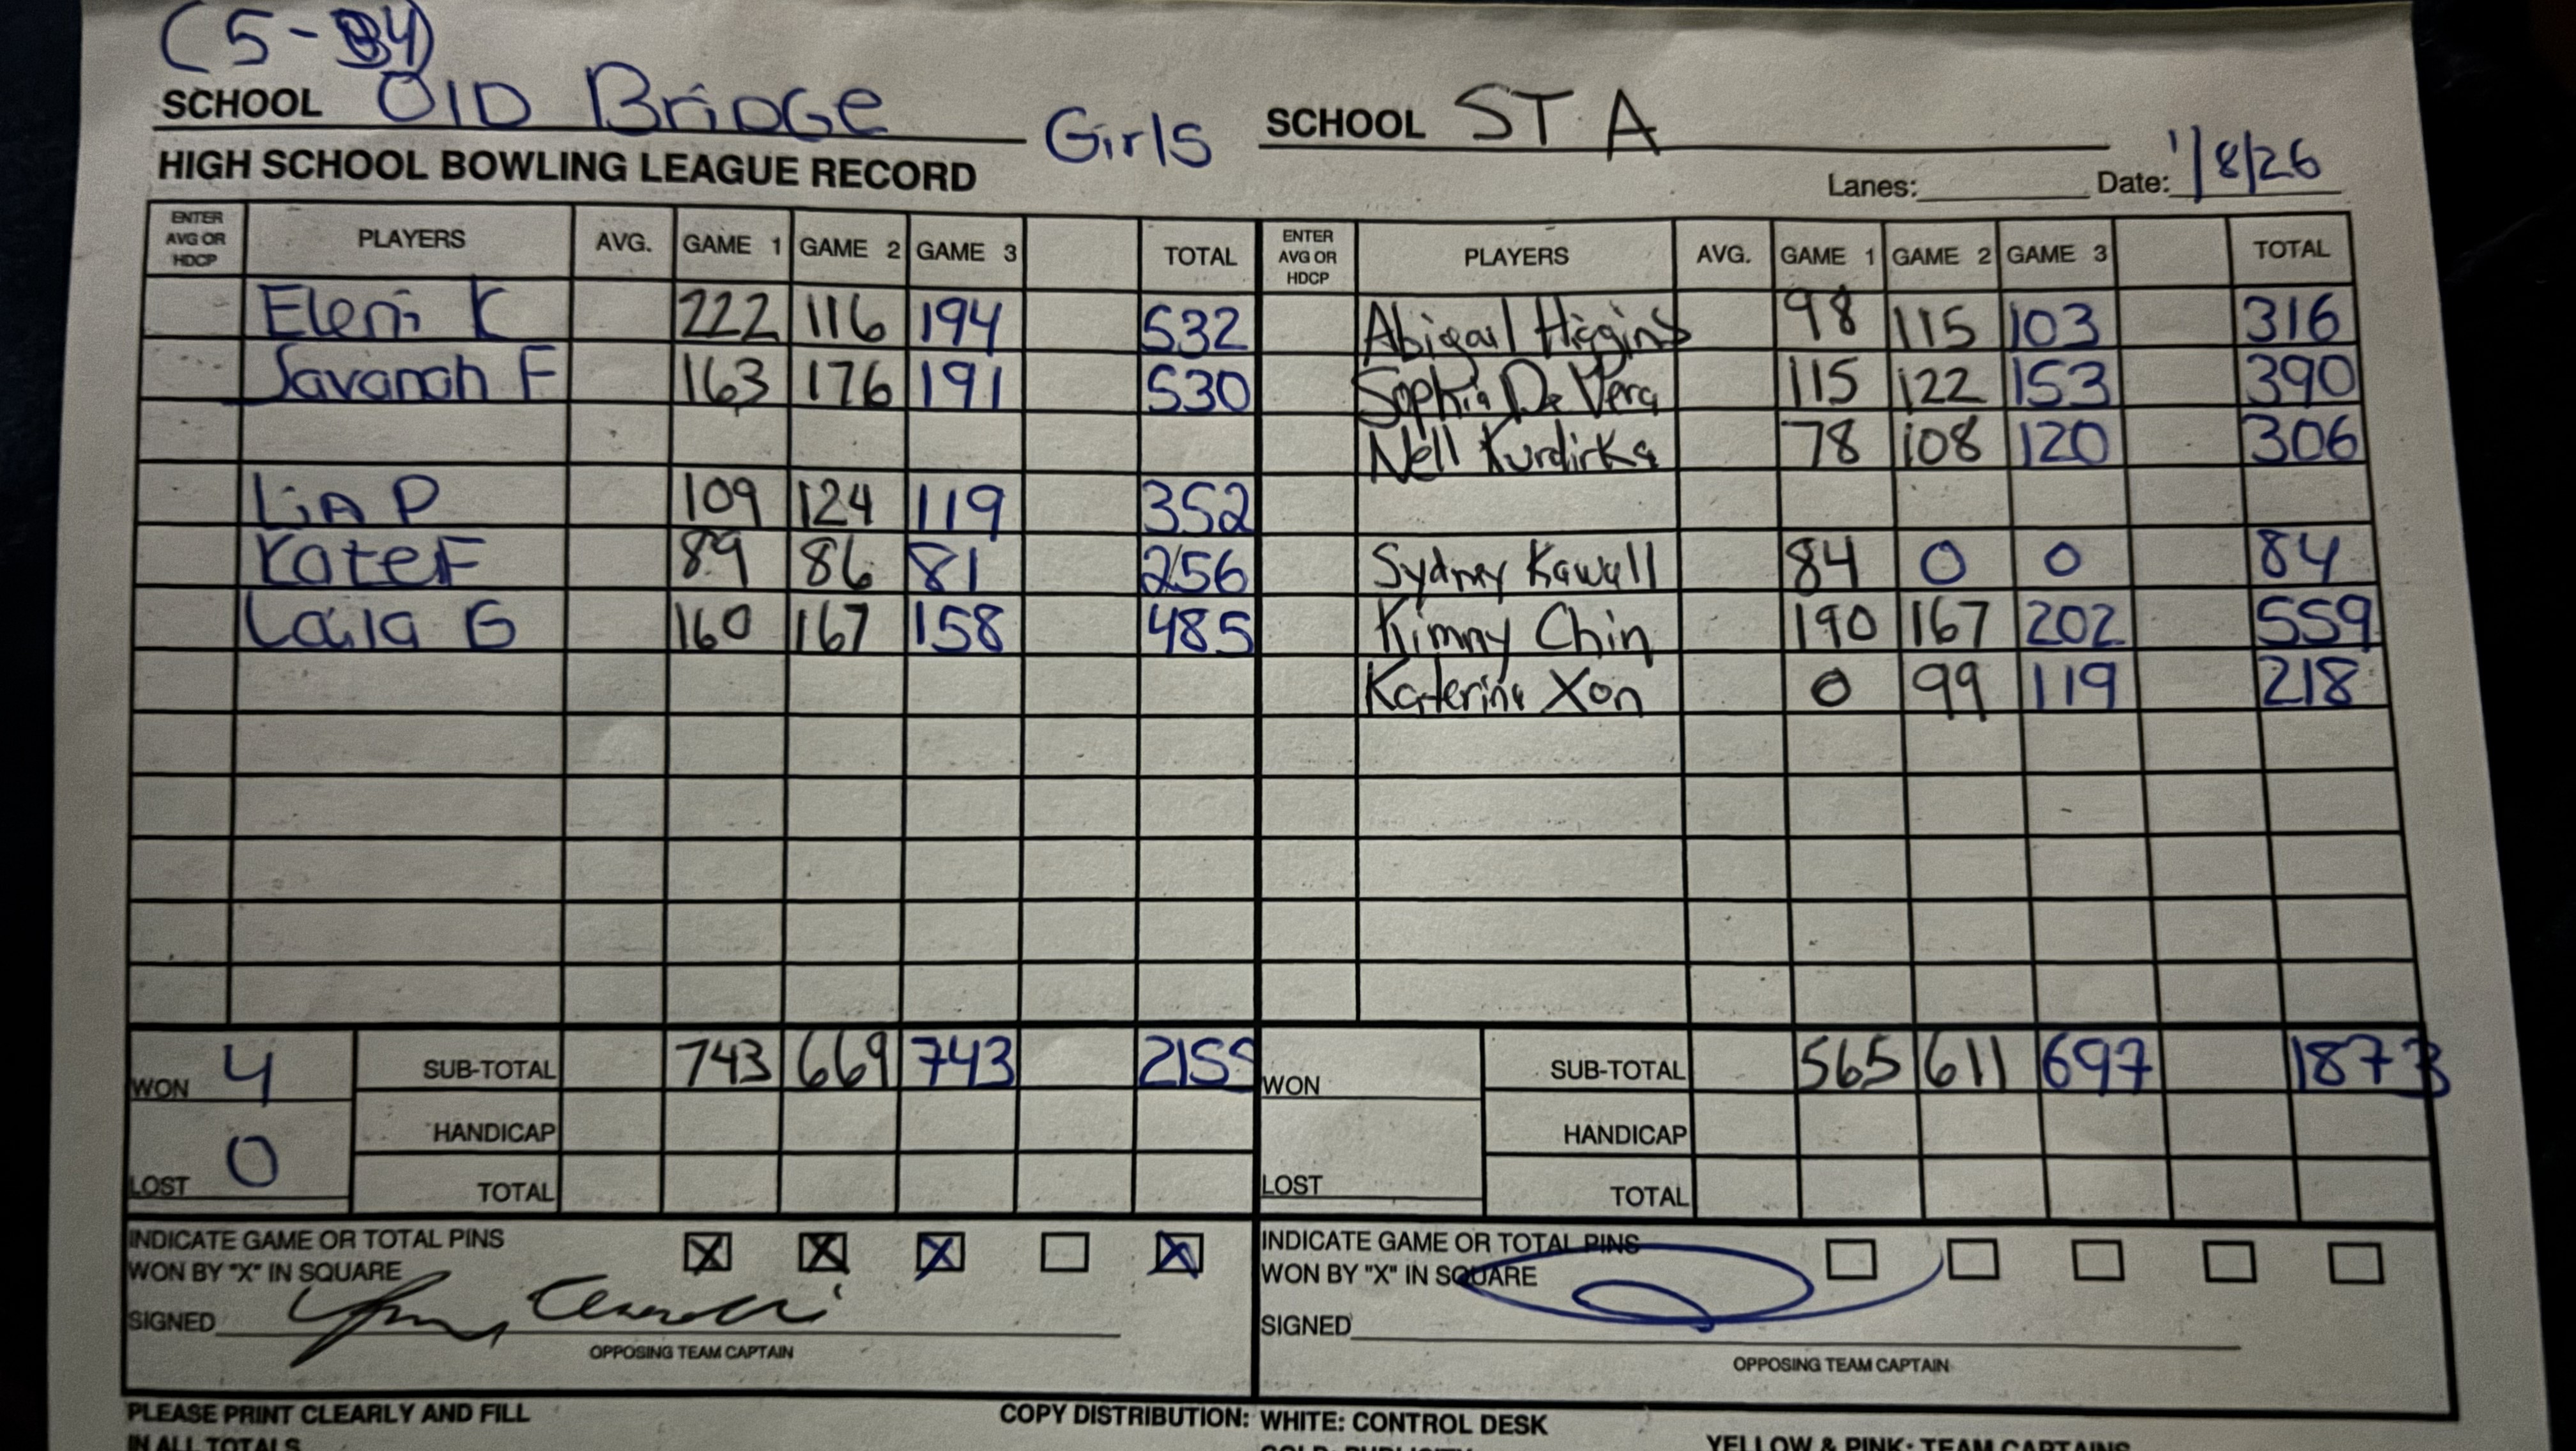 (5-4)
SCHOOL OlD BriDGe Girls SCHOOL ST A
HIGH SCHOOL BOWLING LEAGUE RECORD Lanes: Date: 1/8/26
ENTER AVG OR HDCP PLAYERS AVG. GAME 1 GAME 2 GAME 3 TOTAL ENTER AVG OR HDCP PLAYERS AVG. GAME 1 GAME 2 GAME 3 TOTAL
Eleni K 222 116 194 532 Abigail Higgins 98 115 103 316
Savanah F 163 176 191 530 Sophia De Vera 115 122 153 390
Nell Kurdirka 78 108 120 306
LiA P 109 124 119 352
Kate F 89 86 81 256 Sydney Kawall 84 0 0 84
Laila G 160 167 158 485 Kimny Chin 190 167 202 559
Katerina Xon 0 99 119 218
WON 4 SUB-TOTAL 743 669 743 2155 WON SUB-TOTAL 565 611 697 1873
HANDICAP HANDICAP
LOST 0 TOTAL LOST TOTAL
INDICATE GAME OR TOTAL PINS X X X X INDICATE GAME OR TOTAL PINS
WON BY "X" IN SQUARE WON BY "X" IN SQUARE
SIGNED SIGNED
OPPOSING TEAM CAPTAIN OPPOSING TEAM CAPTAIN
PLEASE PRINT CLEARLY AND FILL COPY DISTRIBUTION: WHITE: CONTROL DESK
IN ALL TOTALS GOLD: PUBLICITY YELLOW & PINK: TEAM CAPTAINS